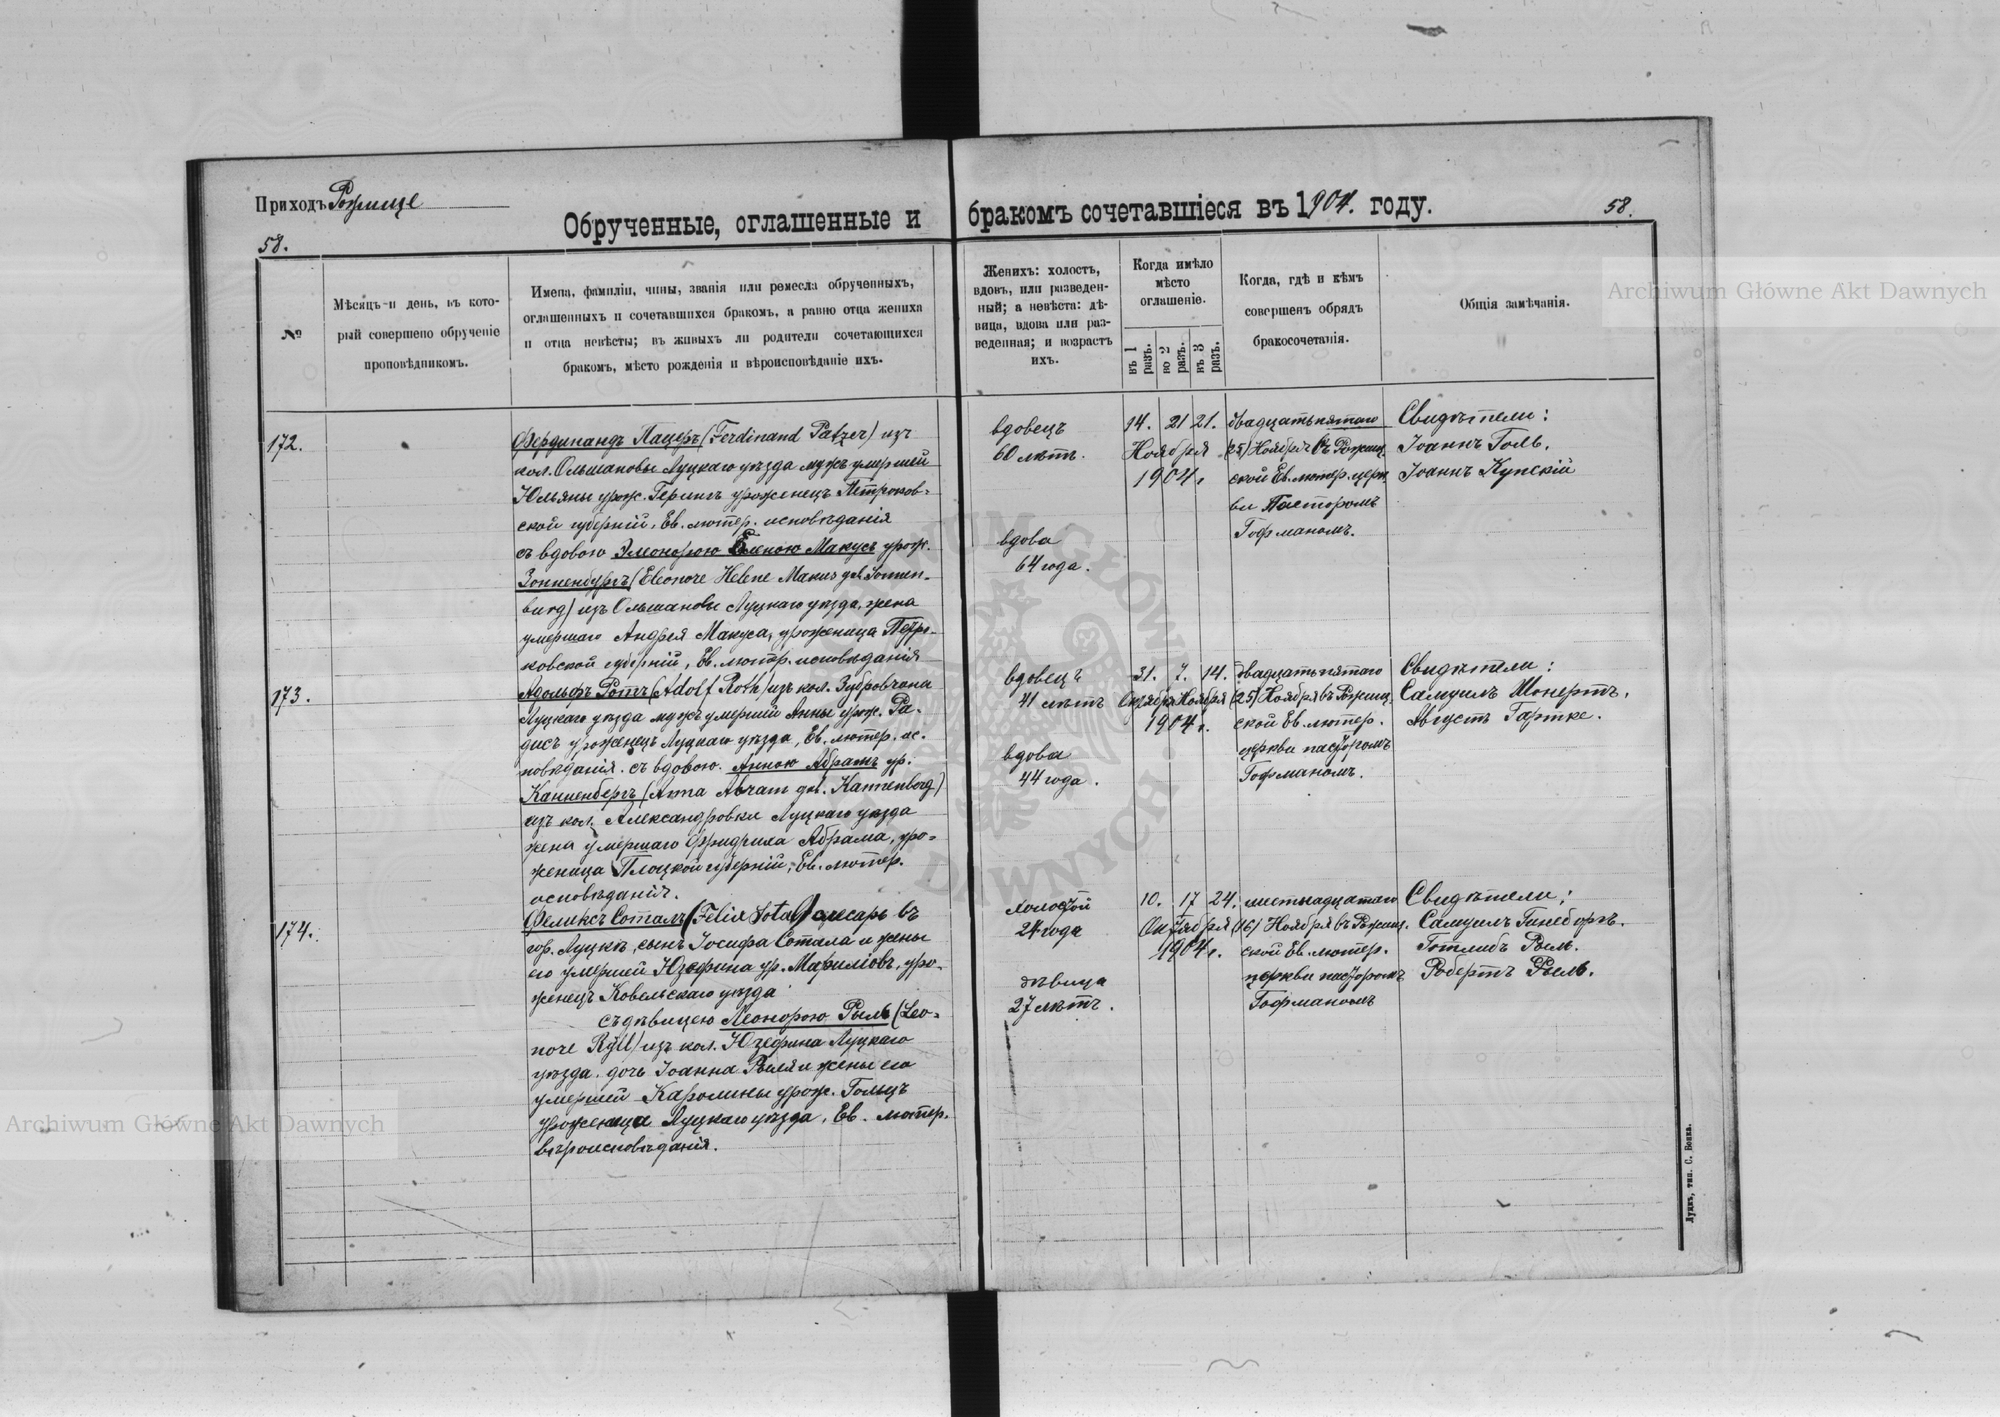 Приходъ Рожище
58.
Обрученные, оглашенные и бракомъ сочетавшіеся въ 1904. году.
58.
№
Мѣсяцъ и день, въ кото-
рый совершено обрученіе
проповѣдникомъ.
Имена, фамиліи, чины, званія или ремесла обрученныхъ,
оглашенныхъ и сочетавшихся бракомъ, а равно отца жениха
и отца невѣсты; въ живыхъ ли родители сочетающихся
бракомъ, мѣсто рожденія и вѣроисповѣданіе ихъ.
Женихъ: холостъ,
вдовъ, или разведен-
ный; а невѣста: дѣ-
вица, вдова или раз-
веденная; и возрастъ
ихъ.
Когда имѣло
мѣсто
оглашеніе.
въ 1 разъ.
во 2 разъ.
въ 3 разъ.
Когда, гдѣ и кѣмъ
совершенъ обрядъ
бракосочетанія.
Общія замѣчанія.
172.
Фердинандъ Пацеръ (Ferdinand Patzer) изъ
кол. Ольшановы Луцкаго уѣзда мужъ умершей
Юльяны урож. Герингъ уроженецъ Петроков-
ской губерніи, Ев. лютер. исповѣданія
съ вдовою Элеонорою Еленою Макусъ урож.
Зонненбургъ (Eleonore Helene Makus geb. Sonnen-
burg) изъ Ольшановы Луцкаго уѣзда, жена
умершаго Андрея Макуса, уроженица Петро-
ковской губерніи, Ев. лютер. исповѣданія
вдовецъ
60 лѣтъ.
вдова
64 года.
14. 21 21.
Ноября
1904 г.
двадцатьпятаго
(25) Ноября въ Рожищ-
ской Ев. лютер. церк
ви Пасторомъ
Гофманомъ.
Свидѣтели:
Іоаннъ Голь.
Іоаннъ Купскій
173.
Адольфъ Ротъ (Adolf Roth) изъ кол. Зубровчана
Луцкаго уѣзда мужъ умершій Анны урож. Ра-
дисъ уроженецъ Луцкаго уѣзда, Ев. лютер. ис-
повѣданія. съ вдовою. Анною Абрамъ ур.
Канненбергъ (Anna Abram geb. Kannenberg)
изъ кол. Александровки Луцкаго уѣзда
жена умершаго Фридриха Абрама, уро-
женица Плоцкой губерніи, Ев. лютер.
исповѣданія.
вдовецъ
41 лѣтъ
вдова
44 года.
31. 7. 14.
Октября Ноября
1904 г.
двадцатьпятаго
(25) Ноября въ Рожищ-
ской Ев. лютер.
церкви пасторомъ
Гофманомъ.
Свидѣтели:
Самуилъ Шонертъ.
Августъ Гартке.
174.
Феликсъ Соталъ (Felix Sotal) слесарь въ
гор. Луцкѣ, сынъ Іосифа Сотала и жены
его умершей Юзефина ур. Мариліовъ, уро-
женецъ Ковельскаго уѣзда
съ дѣвицею Леонорою Рыль (Leo-
nore Ryll) изъ кол. Юзефина Луцкаго
уѣзда. дочь Іоанна Рыля и жены его
умершей Каролины урож. Гольцъ
уроженица Луцкаго уѣзда, Ев. лютер.
вѣроисповѣданія.
холостой
24 года
дѣвица
27 лѣтъ.
10. 17 24.
Октября
1904 г.
шестнадцатаго
(16) Ноября въ Рожищ-
ской Ев. лютер.
церкви пасторомъ
Гофманомъ
Свидѣтели:
Самуилъ Гинсборъ.
Готлибъ Рыль.
Робертъ Рыль.
Луцкъ, тип. С. Бонка.
Archiwum Główne Akt Dawnych
Archiwum Główne Akt Dawnych